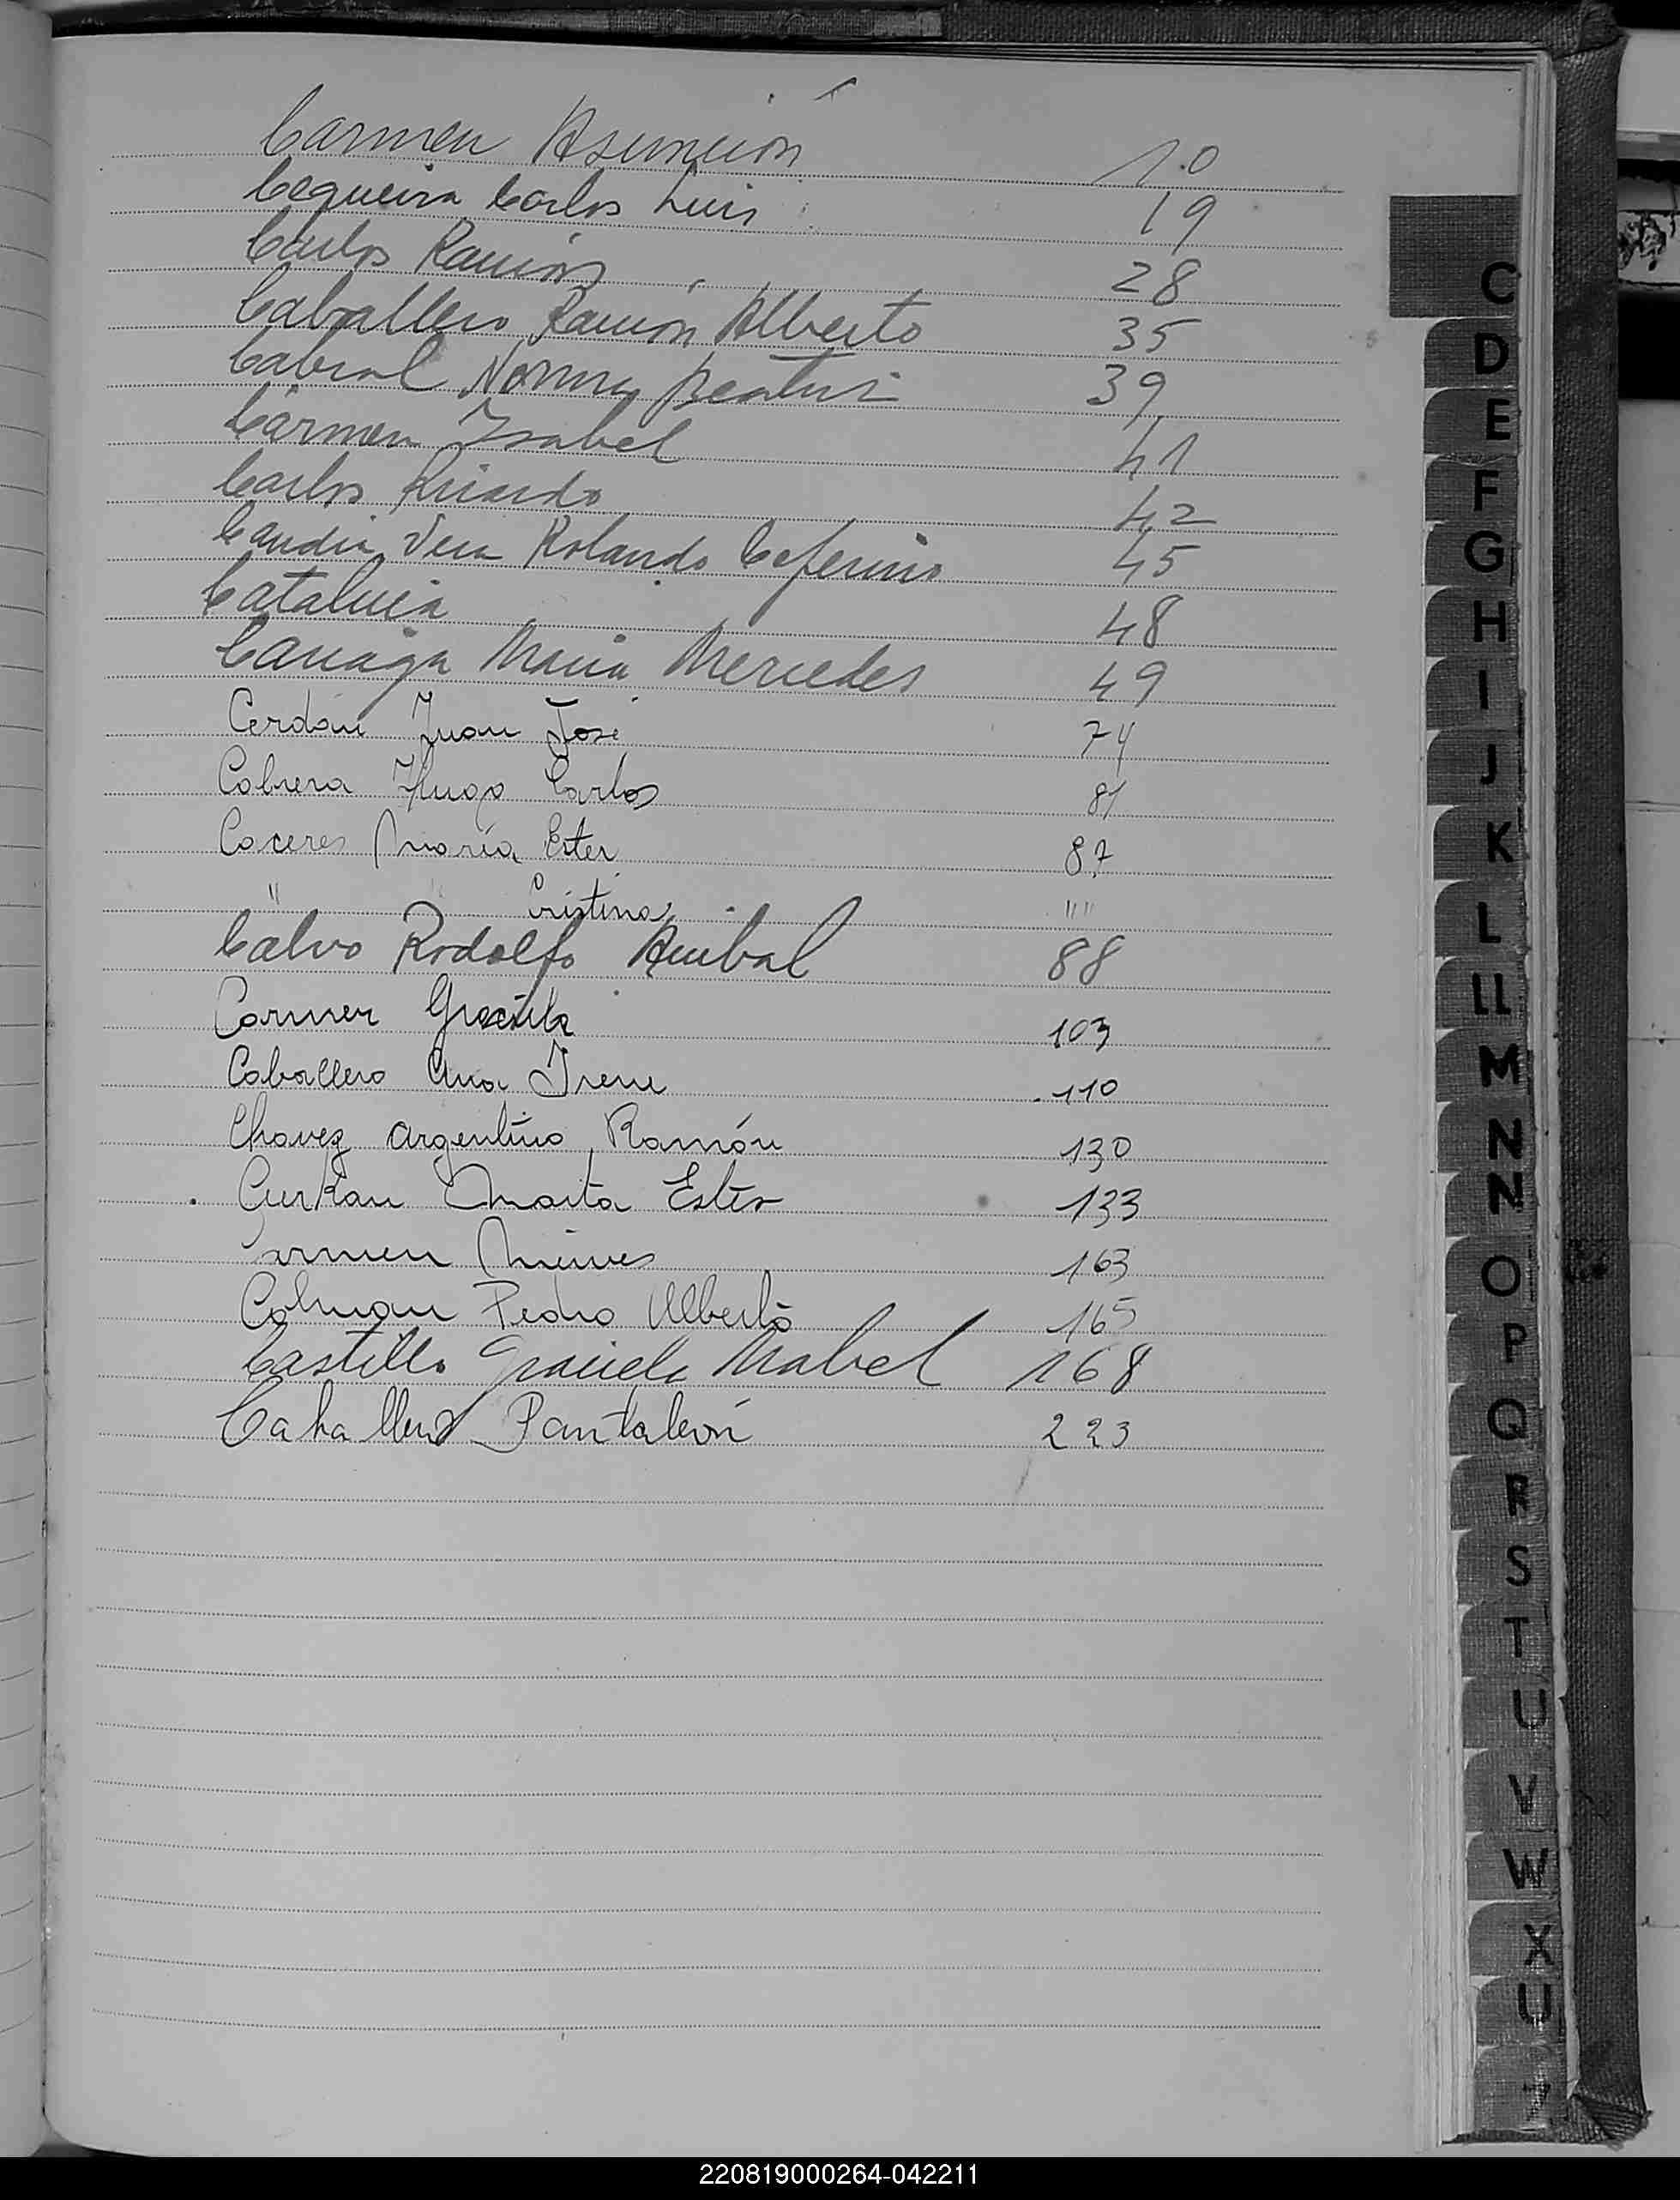 Carmen Asunción 10
Cequeira Carlos Luis 19
Carlos Ramón 28
Caballero Ramón Alberto 35
Cabral Norma Beatriz 39
Carmen Isabel 41
Carlos Ricardo 42
Candia Vera Rolando Ceferino 45
Catalina 48
Cariaga Maria Mercedes 49
Cerdán Juan José 74
Cabrera Hugo Carlos 81
Caceres María Ester 87
" " Cristina " "
Calvo Rodolfo Anibal 88
Carmen Graciela 103
Caballero Ana Irene 110
Chavez Argentino Ramón 130
Curkan Marta Ester 133
Carmen Nieves 163
Colman Pedro Alberto 165
Castillo Graciela Mabel 168
Caballero Pantaleón 223
C
D
E
F
G
H
I
J
K
L
LL
M
N
Ñ
O
P
Q
R
S
T
U
V
W
X
220819000264-042211